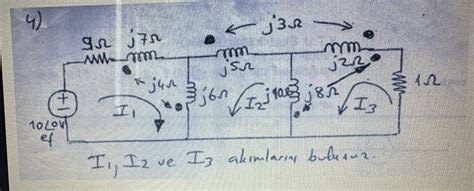 4)
j3Ω
9Ω j7Ω
j5Ω j2Ω
j4Ω j6Ω j8Ω 1Ω
I₁ I₂ I₃
10∠0 V
ef
I₁, I₂ ve I₃ akımlarını bulunuz.